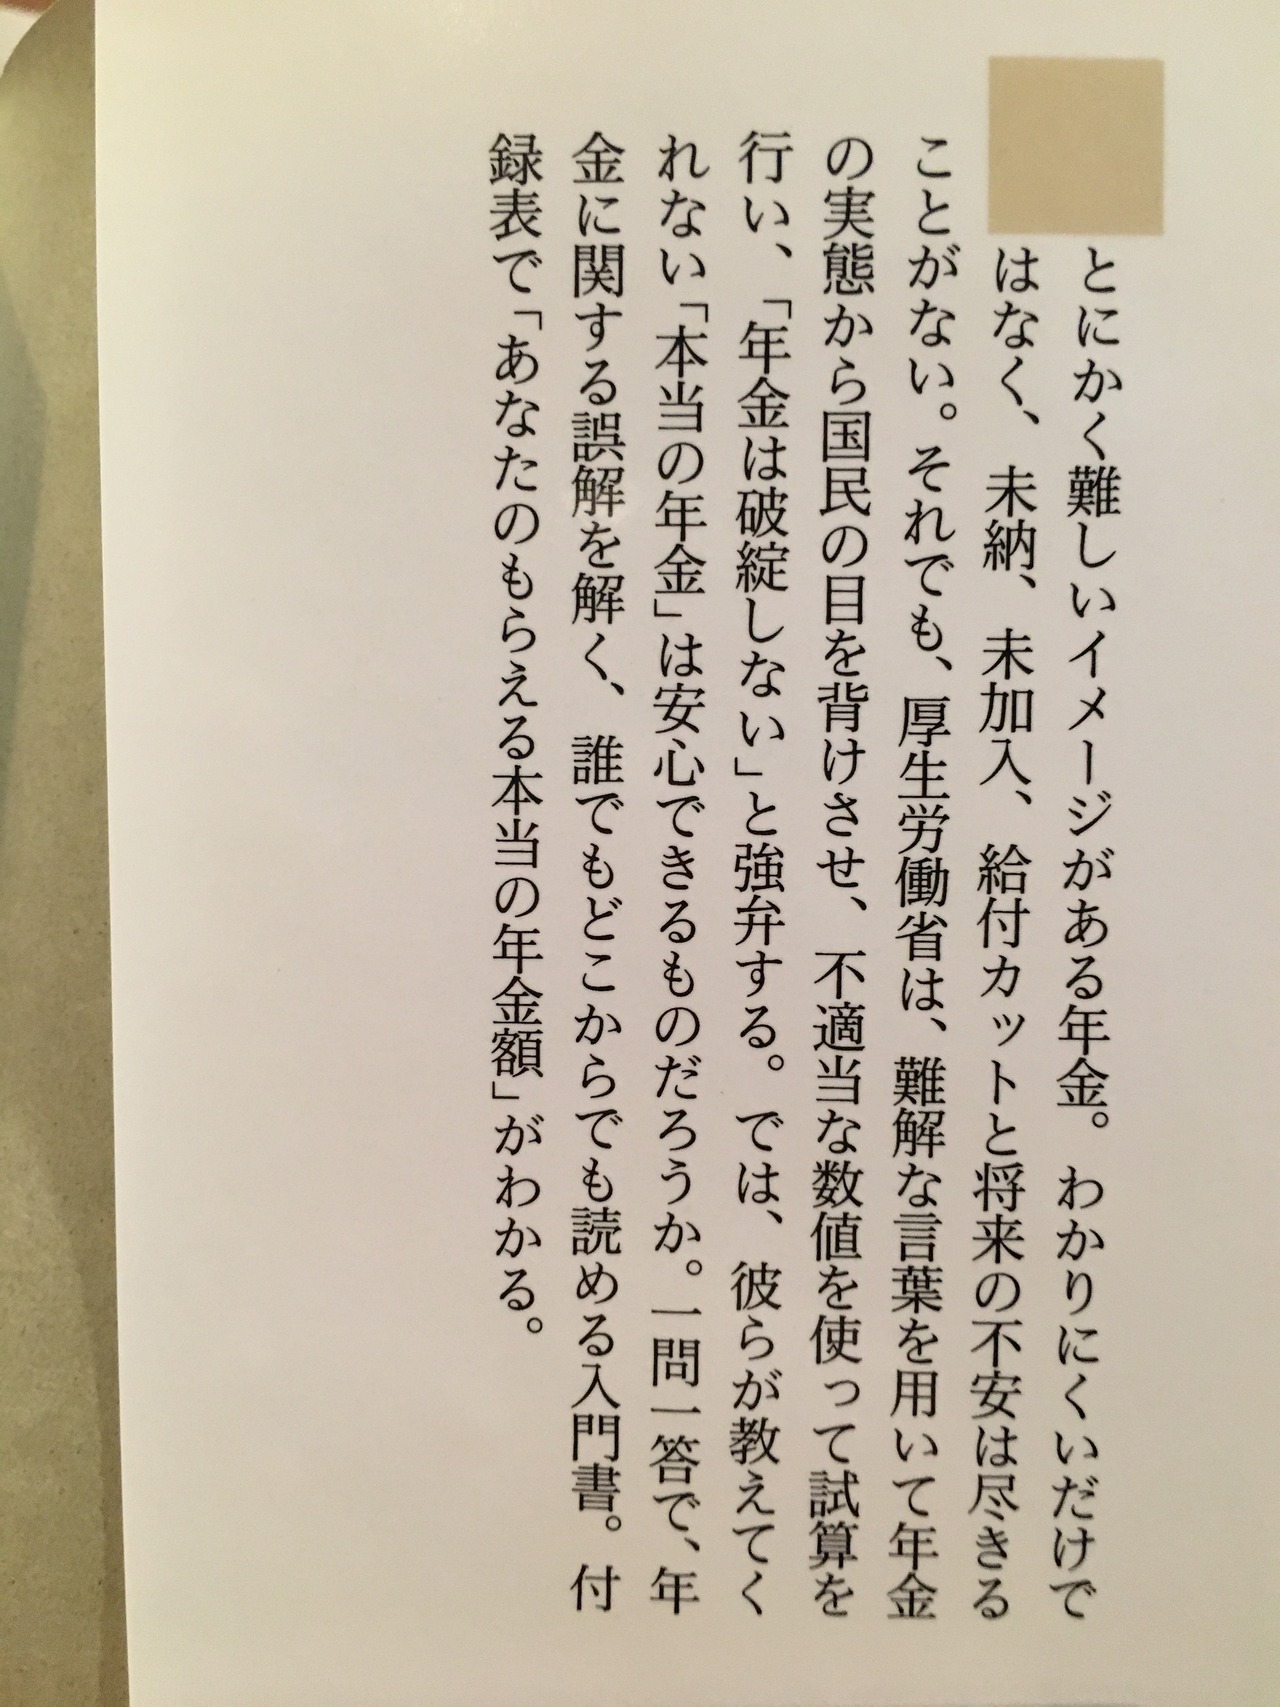 とにかく難しいイメージがある年金。わかりにくいだけで
はなく、未納、未加入、給付カットと将来の不安は尽きる
ことがない。それでも、厚生労働省は、難解な言葉を用いて年金
の実態から国民の目を背けさせ、不適当な数値を使って試算を
行い、「年金は破綻しない」と強弁する。では、彼らが教えてく
れない「本当の年金」は安心できるものだろうか。一問一答で、年
金に関する誤解を解く、誰でもどこからでも読める入門書。付
録表で「あなたのもらえる本当の年金額」がわかる。